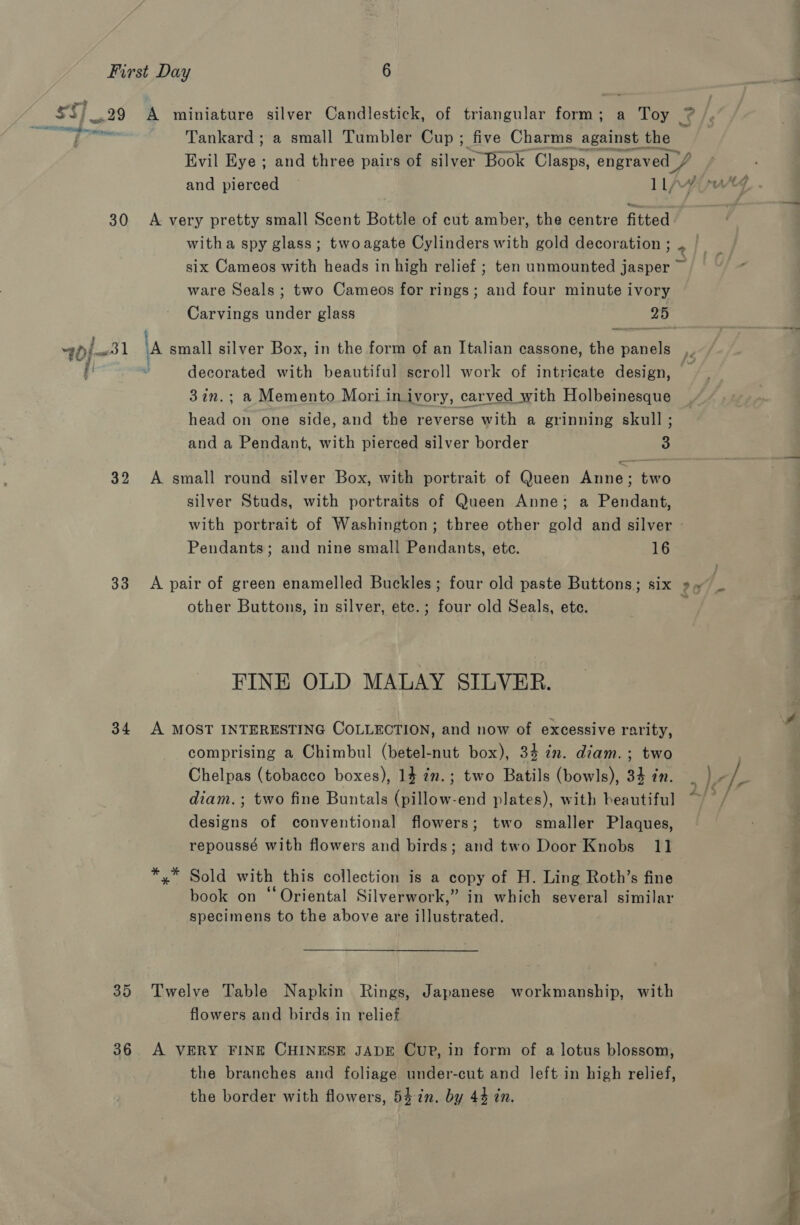 First Day 6
29 A miniature silver Candlestick, of triangular form; a Toy
Tankard; a small Tumbler Cup; five Charms against the
Evil Eye; and three pairs of silver Book Clasps, engraved
and pierced 11
30 A very pretty small Scent Bottle of cut amber, the centre fitted
with a spy glass; two agate Cylinders with gold decoration;
six Cameos with heads in high relief; ten unmounted jasper
ware Seals; two Cameos for rings; and four minute ivory
Carvings under glass 25
31 A small silver Box, in the form of an Italian cassone, the panels
decorated with beautiful scroll work of intricate design,
3 in.; a Memento Mori in ivory, carved with Holbeinesque
head on one side, and the reverse with a grinning skull;
and a Pendant, with pierced silver border 3
32 A small round silver Box, with portrait of Queen Anne; two
silver Studs, with portraits of Queen Anne; a Pendant,
with portrait of Washington; three other gold and silver
Pendants; and nine small Pendants, etc. 16
33 A pair of green enamelled Buckles; four old paste Buttons; six
other Buttons, in silver, etc.; four old Seals, etc.
FINE OLD MALAY SILVER.
34 A MOST INTERESTING COLLECTION, and now of excessive rarity,
comprising a Chimbul (betel-nut box), 3½ in. diam.; two
Chelpas (tobacco boxes), 1½ in.; two Batils (bowls), 3½ in.
diam.; two fine Buntals (pillow-end plates), with beautiful
designs of conventional flowers; two smaller Plaques,
repoussé with flowers and birds; and two Door Knobs 11
*⁎* Sold with this collection is a copy of H. Ling Roth's fine
book on “Oriental Silverwork,” in which several similar
specimens to the above are illustrated.
35 Twelve Table Napkin Rings, Japanese workmanship, with
flowers and birds in relief
36 A VERY FINE CHINESE JADE CUP, in form of a lotus blossom,
the branches and foliage under-cut and left in high relief,
the border with flowers, 5½ in. by 4½ in.